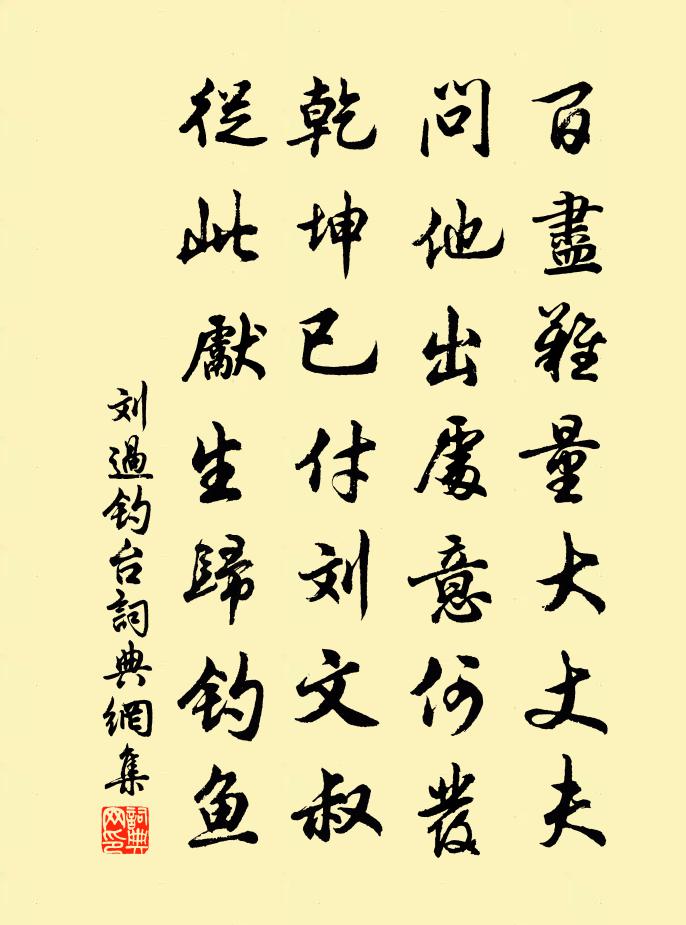 百盡難量大丈夫
問他出處意何發
乾坤已付刘文叔
從此獻生歸钓鱼
刘過钓台詞典網集
詞典网印